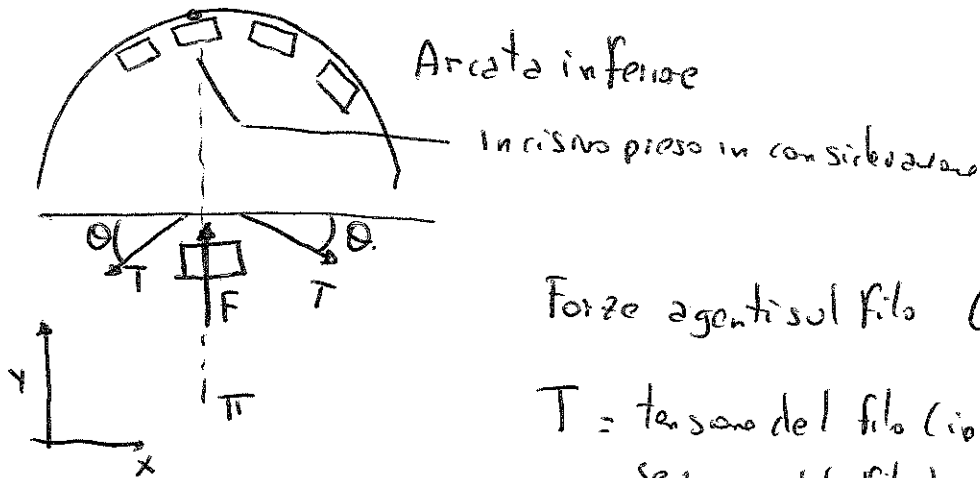 Arcata inferiore
Incisivo preso in considerazione
θ
θ.
T
T
F
Forze agenti sul filo (
Y
π
T = tensione del filo (ip
X